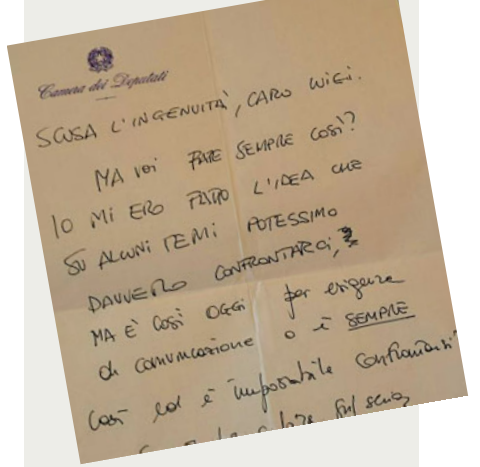 Camera dei Deputati
SCUSA L'INGENUITÀ, CARO WIGI.
MA VOI FATE SEMPRE COSÌ?
IO MI ERO FATTO L'IDEA CHE
SU ALCUNI TEMI POTESSIMO
DAVVERO CONFRONTARCI,
MA È COSÌ OGGI per esigenze
di comunicazione o è SEMPRE
così ed è impossibile confrontarsi
sul serio